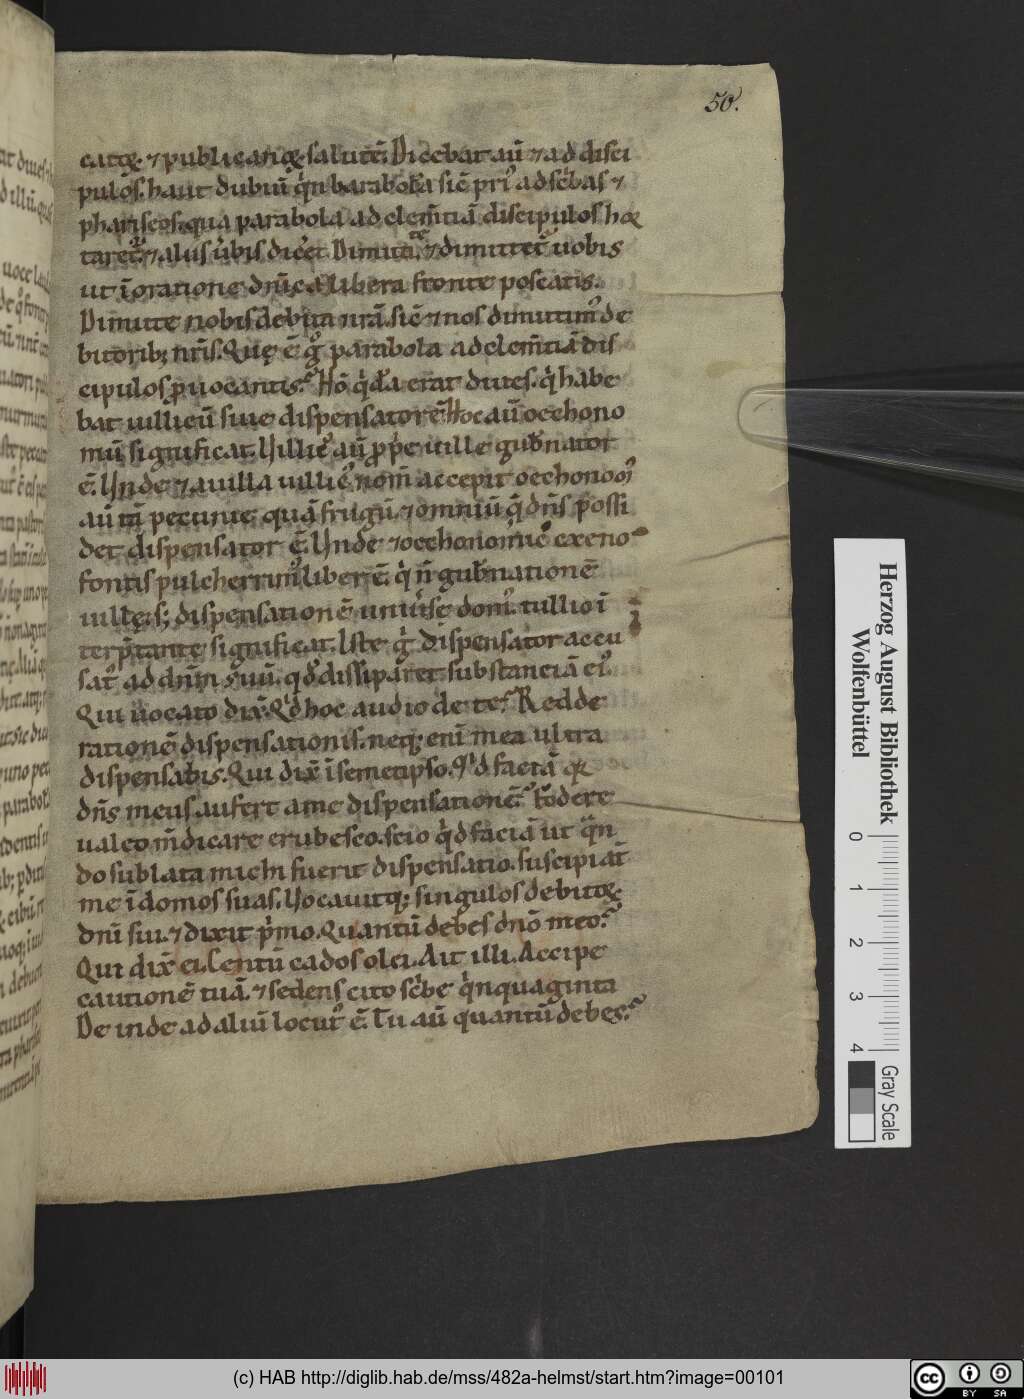 50.
catoꝝ. ⁊ publicanoꝝ. salutē. Dicebat aū ⁊ ad disci
pulos. haut dubiū qͥn barabola sic̄ priꝰ ad sc̄bas ⁊
phariseos. qua parabola ad clem̄tiā discipulos hoꝝ
taretᷣ. ⁊ aliis ūbis dic̄et. Dimitte. ⁊ dimittet̄ uobis
ut ī oratione dnīca libera fronte poscatis.
Dimitte nobis debita nrā. sic̄ ⁊ nos dimittimꝰ de
bitorib; nrīs. Quę ē g̊ parabola ad clem̄tiā dis
cipulos ꝓuocantis? Hō qͥdā erat diues. qͥ habe
bat uillicū siue dispensatorē. Hoc aū oechono
mū significat. Uillicꝰ aū ꝓpͥe uille gub̄nator
ē. Unde ⁊ a uilla uillicꝰ nom̄ accepit. oechonomꝰ
aū tā pecunie quā frugū. ⁊ omniū q̄ dn̄s possi
det dispensator ē. Unde ⁊ oechonomicꝰ exeno
fontis pulcherrimꝰ liber ē. qͥ n̄ gub̄nationē
uillę. s; dispensationē uniūsę domꝰ. tullio ī
terp̄tante significat. Iste gͥ dispensator accu
satꝰ ad dn̄m suū. qd̄ dissiparet substanciā eiꝰ.
Qui uocato dix̄. Qͥd hoc audio de te? Redde
rationē dispensationis. neq; enī mea ultra
dispensabis. Qui dix̄ ī semetipso. Qͥd faciā qꝛ
dn̄s meus aufert a me dispensationē? Fodere
ualeo m̄dicare erubesco. scio qͥd faciā ut q̄n
do sublata michi fuerit dispensatio. suscipiāt
me ī domos suas. Uocauitq; singulos debitoꝝ.
dnī sui. ⁊ dixit pͥmo. Quantū debes dnō meo?
Qui dix̄ ei. Centū cados olei. Ait illi. Accipe
cautionē tuā. ⁊ sedens cito sc̄be qͥnquaginta
De inde ad aliū locutꝰ ē. Tu aū quantū debes?
Herzog August Bibliothek
Wolfenbüttel
0 1 2 3 4
Gray Scale
(c) HAB http://diglib.hab.de/mss/482a-helmst/start.htm?image=00101
cc BY SA